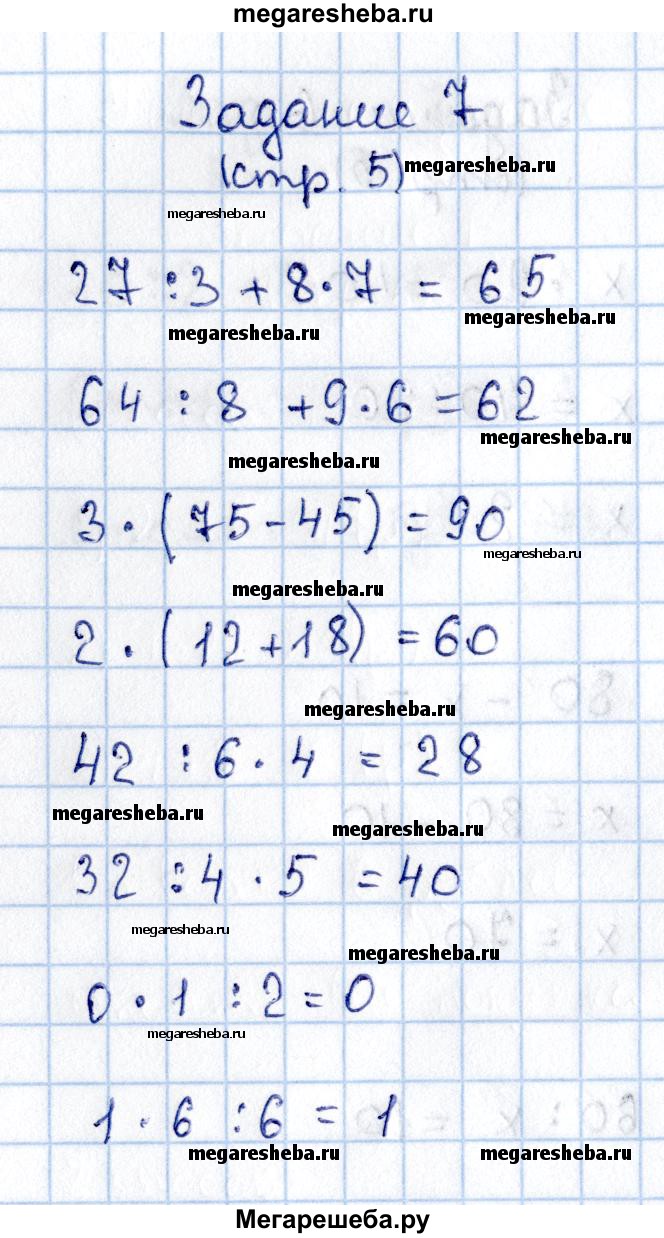 megaresheba.ru
Задание 7
(стр. 5) megaresheba.ru
megaresheba.ru
27 : 3 + 8 · 7 = 65
megaresheba.ru
megaresheba.ru
64 : 8 + 9 · 6 = 62
megaresheba.ru
megaresheba.ru
3 · (75 - 45) = 90
megaresheba.ru
megaresheba.ru
2 · (12 + 18) = 60
megaresheba.ru
42 : 6 · 4 = 28
megaresheba.ru
megaresheba.ru
32 : 4 · 5 = 40
megaresheba.ru
megaresheba.ru
0 · 1 : 2 = 0
megaresheba.ru
1 · 6 : 6 = 1
megaresheba.ru megaresheba.ru
Мегарешеба.ру